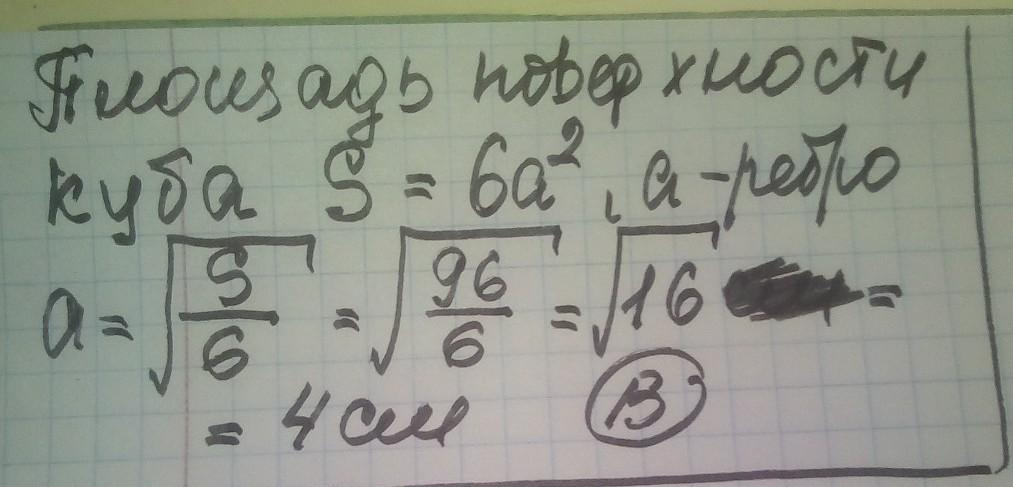 Площадь поверхности
куба S = 6a², a - ребро
a = √(S/6) = √(96/6) = √16 =
= 4 см В